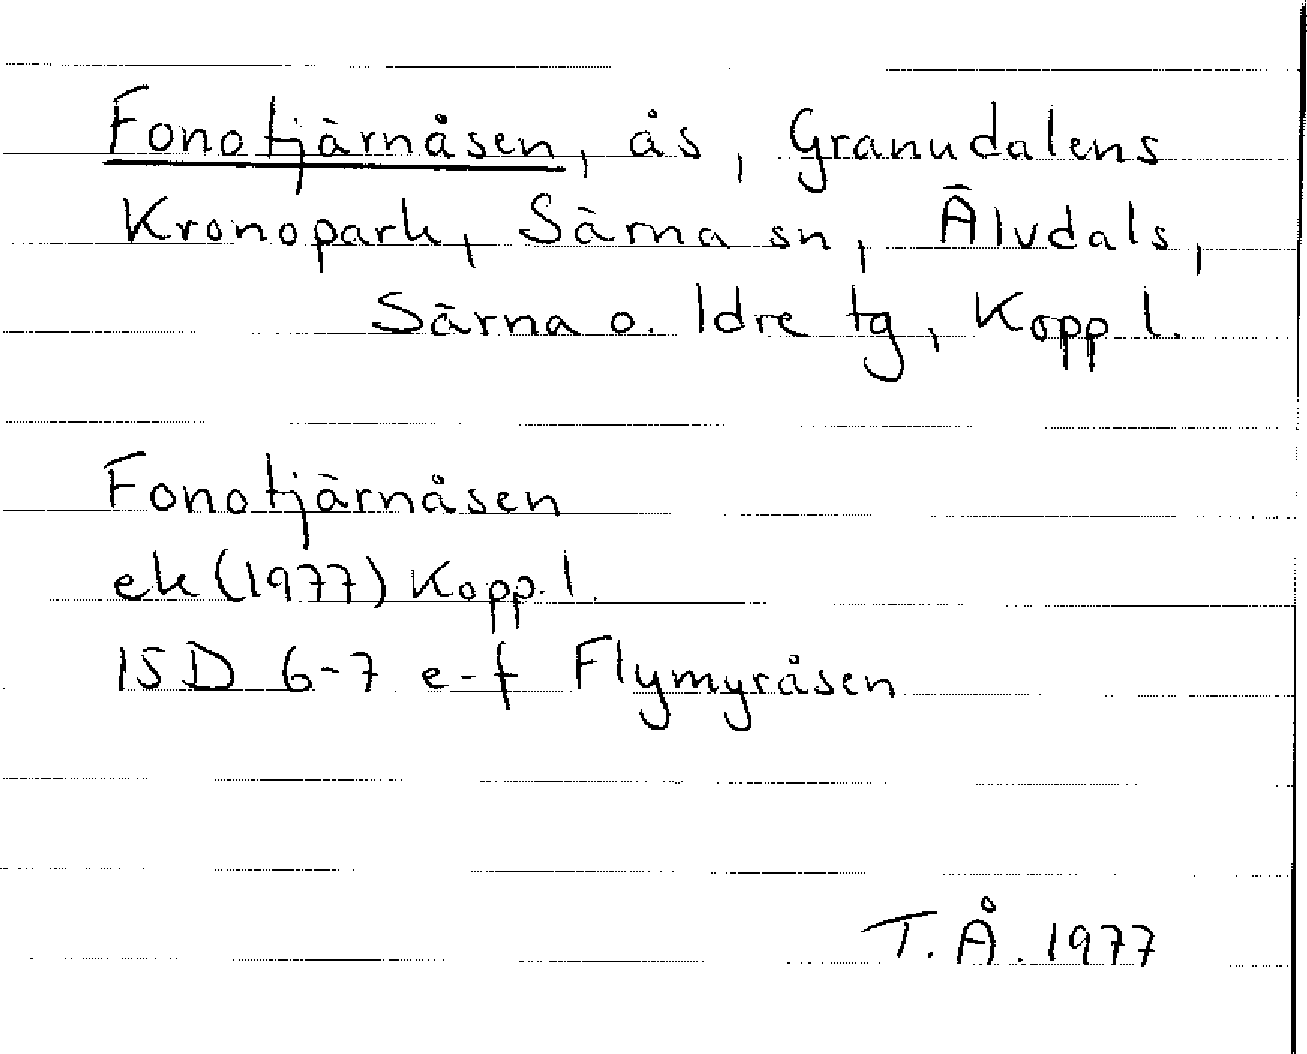 Fonotjärnåsen, ås, Granudalens
Kronopark, Särna sn, Älvdals,
Särna o. Idre tg, Kopp l.
Fonotjärnåsen
ek (1977) Kopp. l.
15D 6-7 e-f Flymyråsen
T.Å. 1977